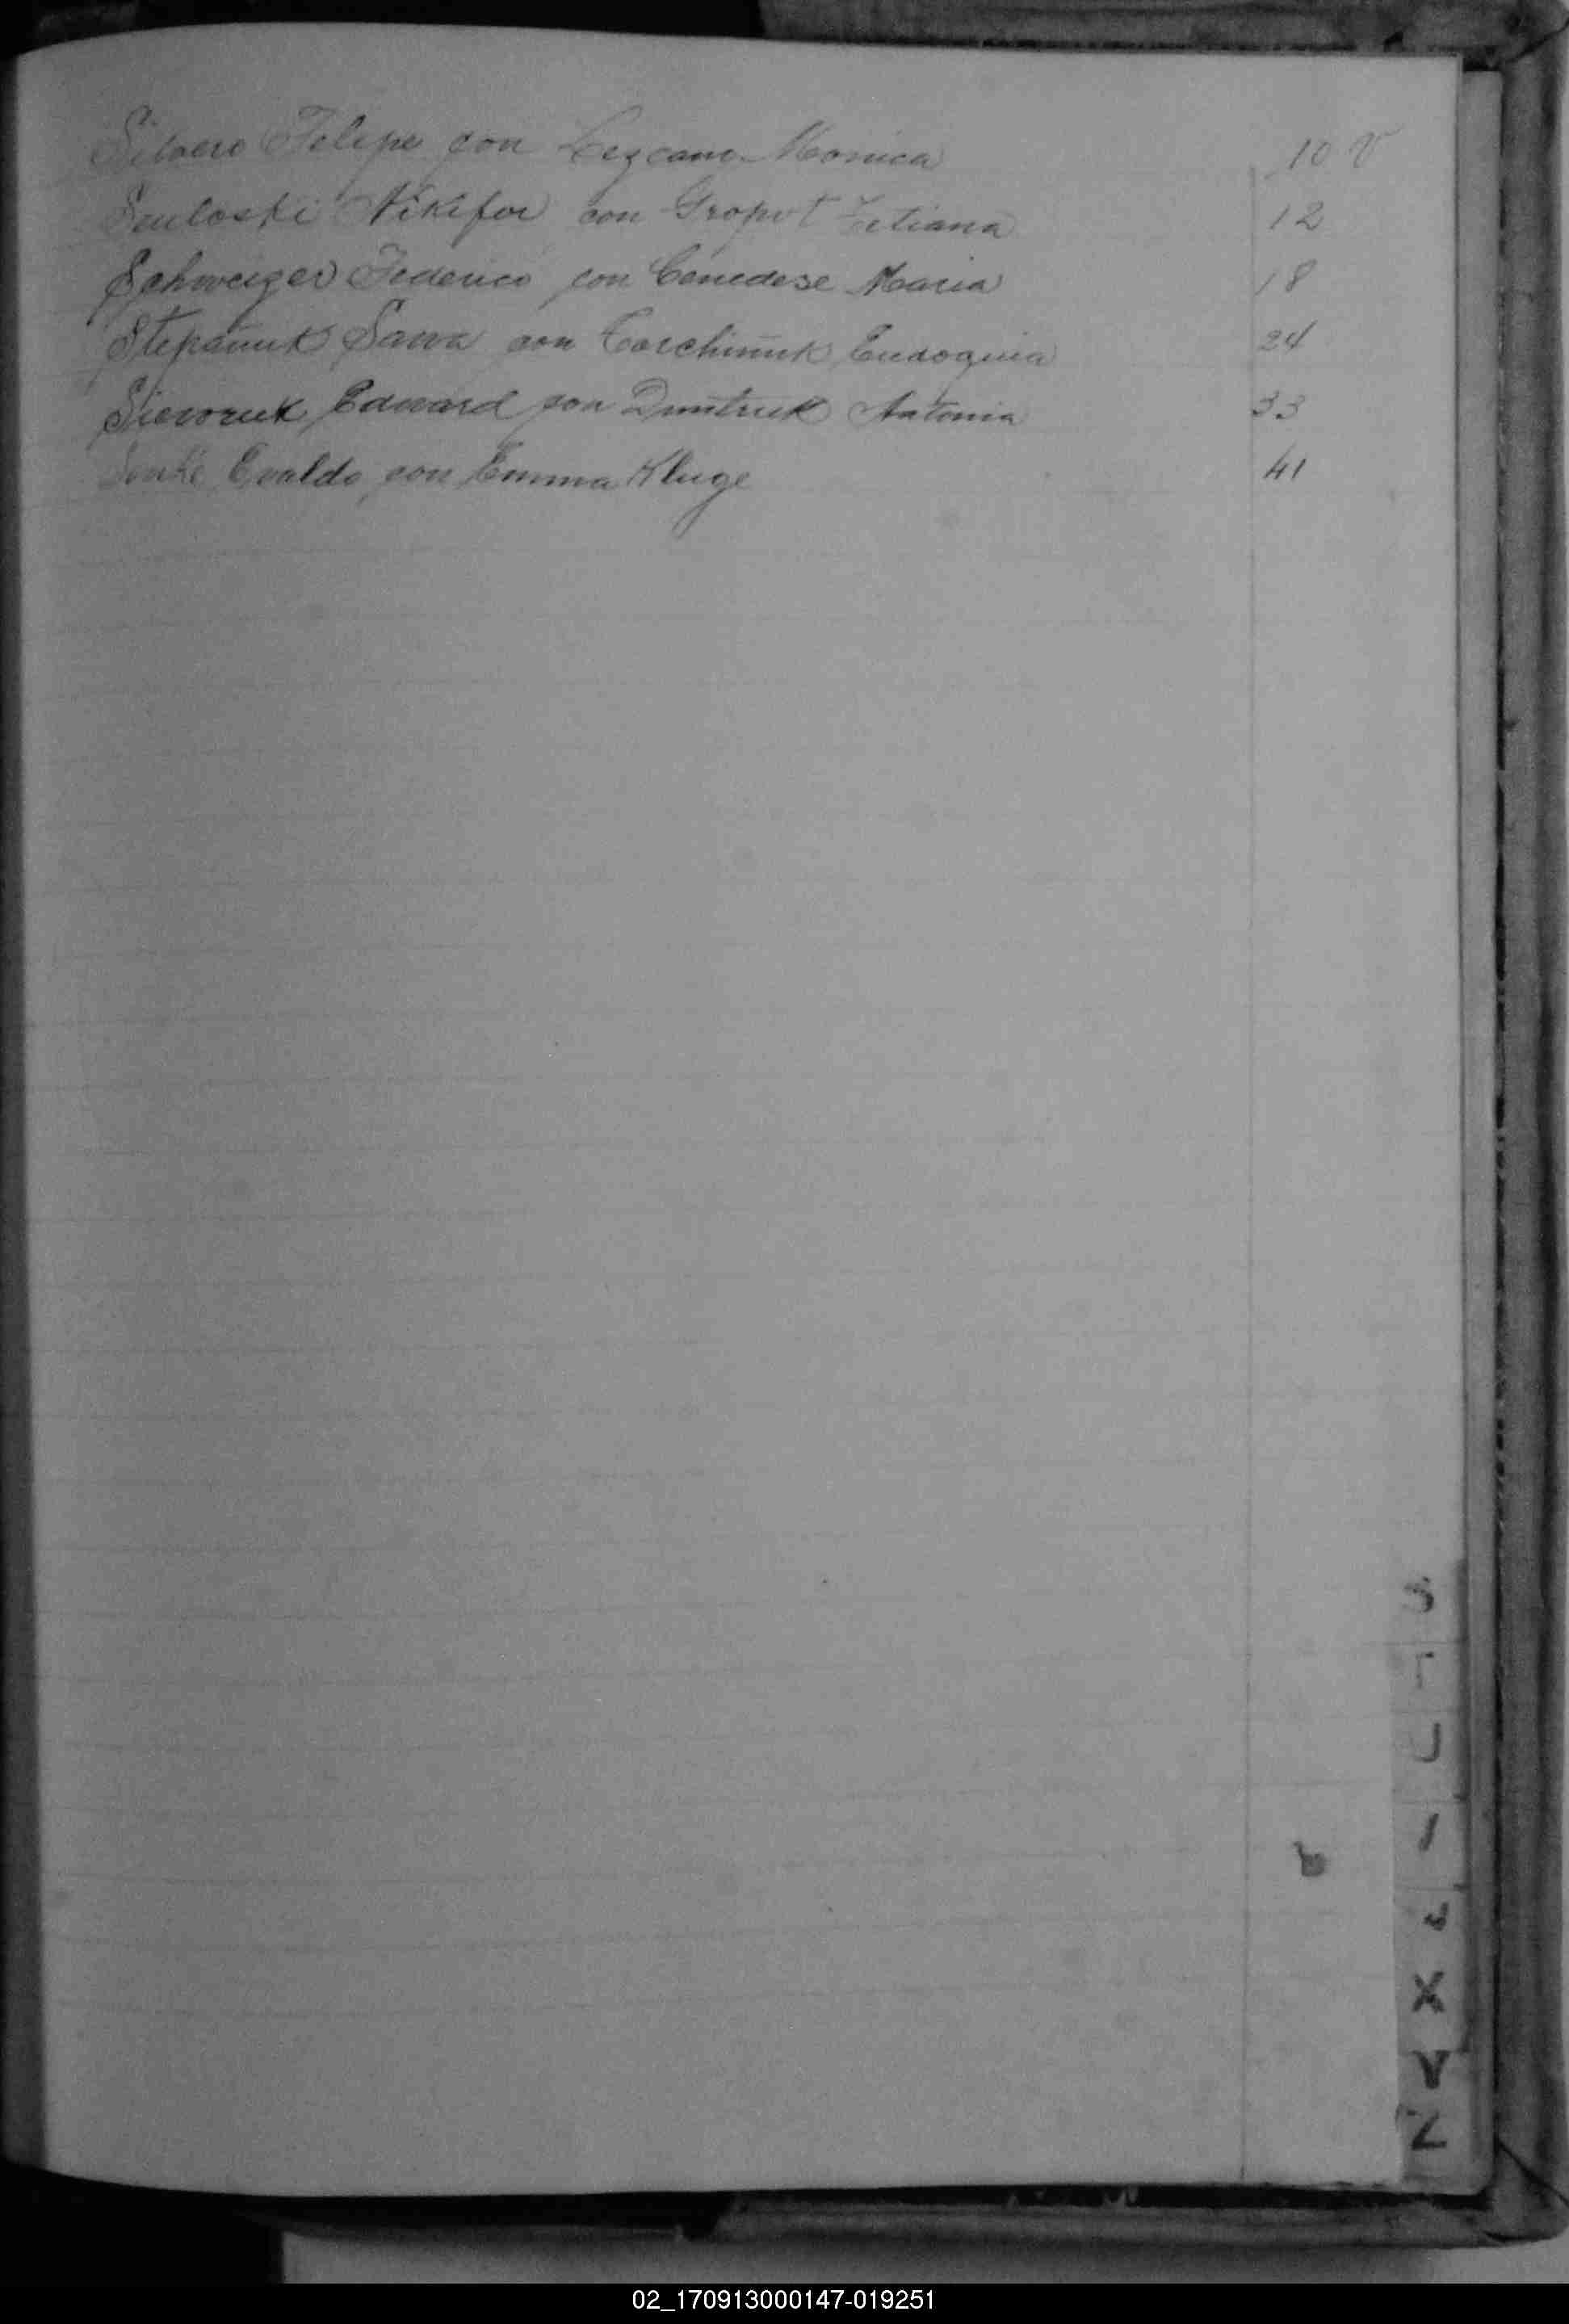 Silvero Felipe con Lezcano Monica 10 V
Nikifor con Gropot Tetiana 12
Schweizer Federico con Cenedese Maria 18
Stepaniuk Sawa con Eudoquia 24
Sieworuk Edward con Dmitruk Antonia 33
Evaldo con Emma Kluge 41
S
T
U
X
Y
Z
02_170913000147-019251